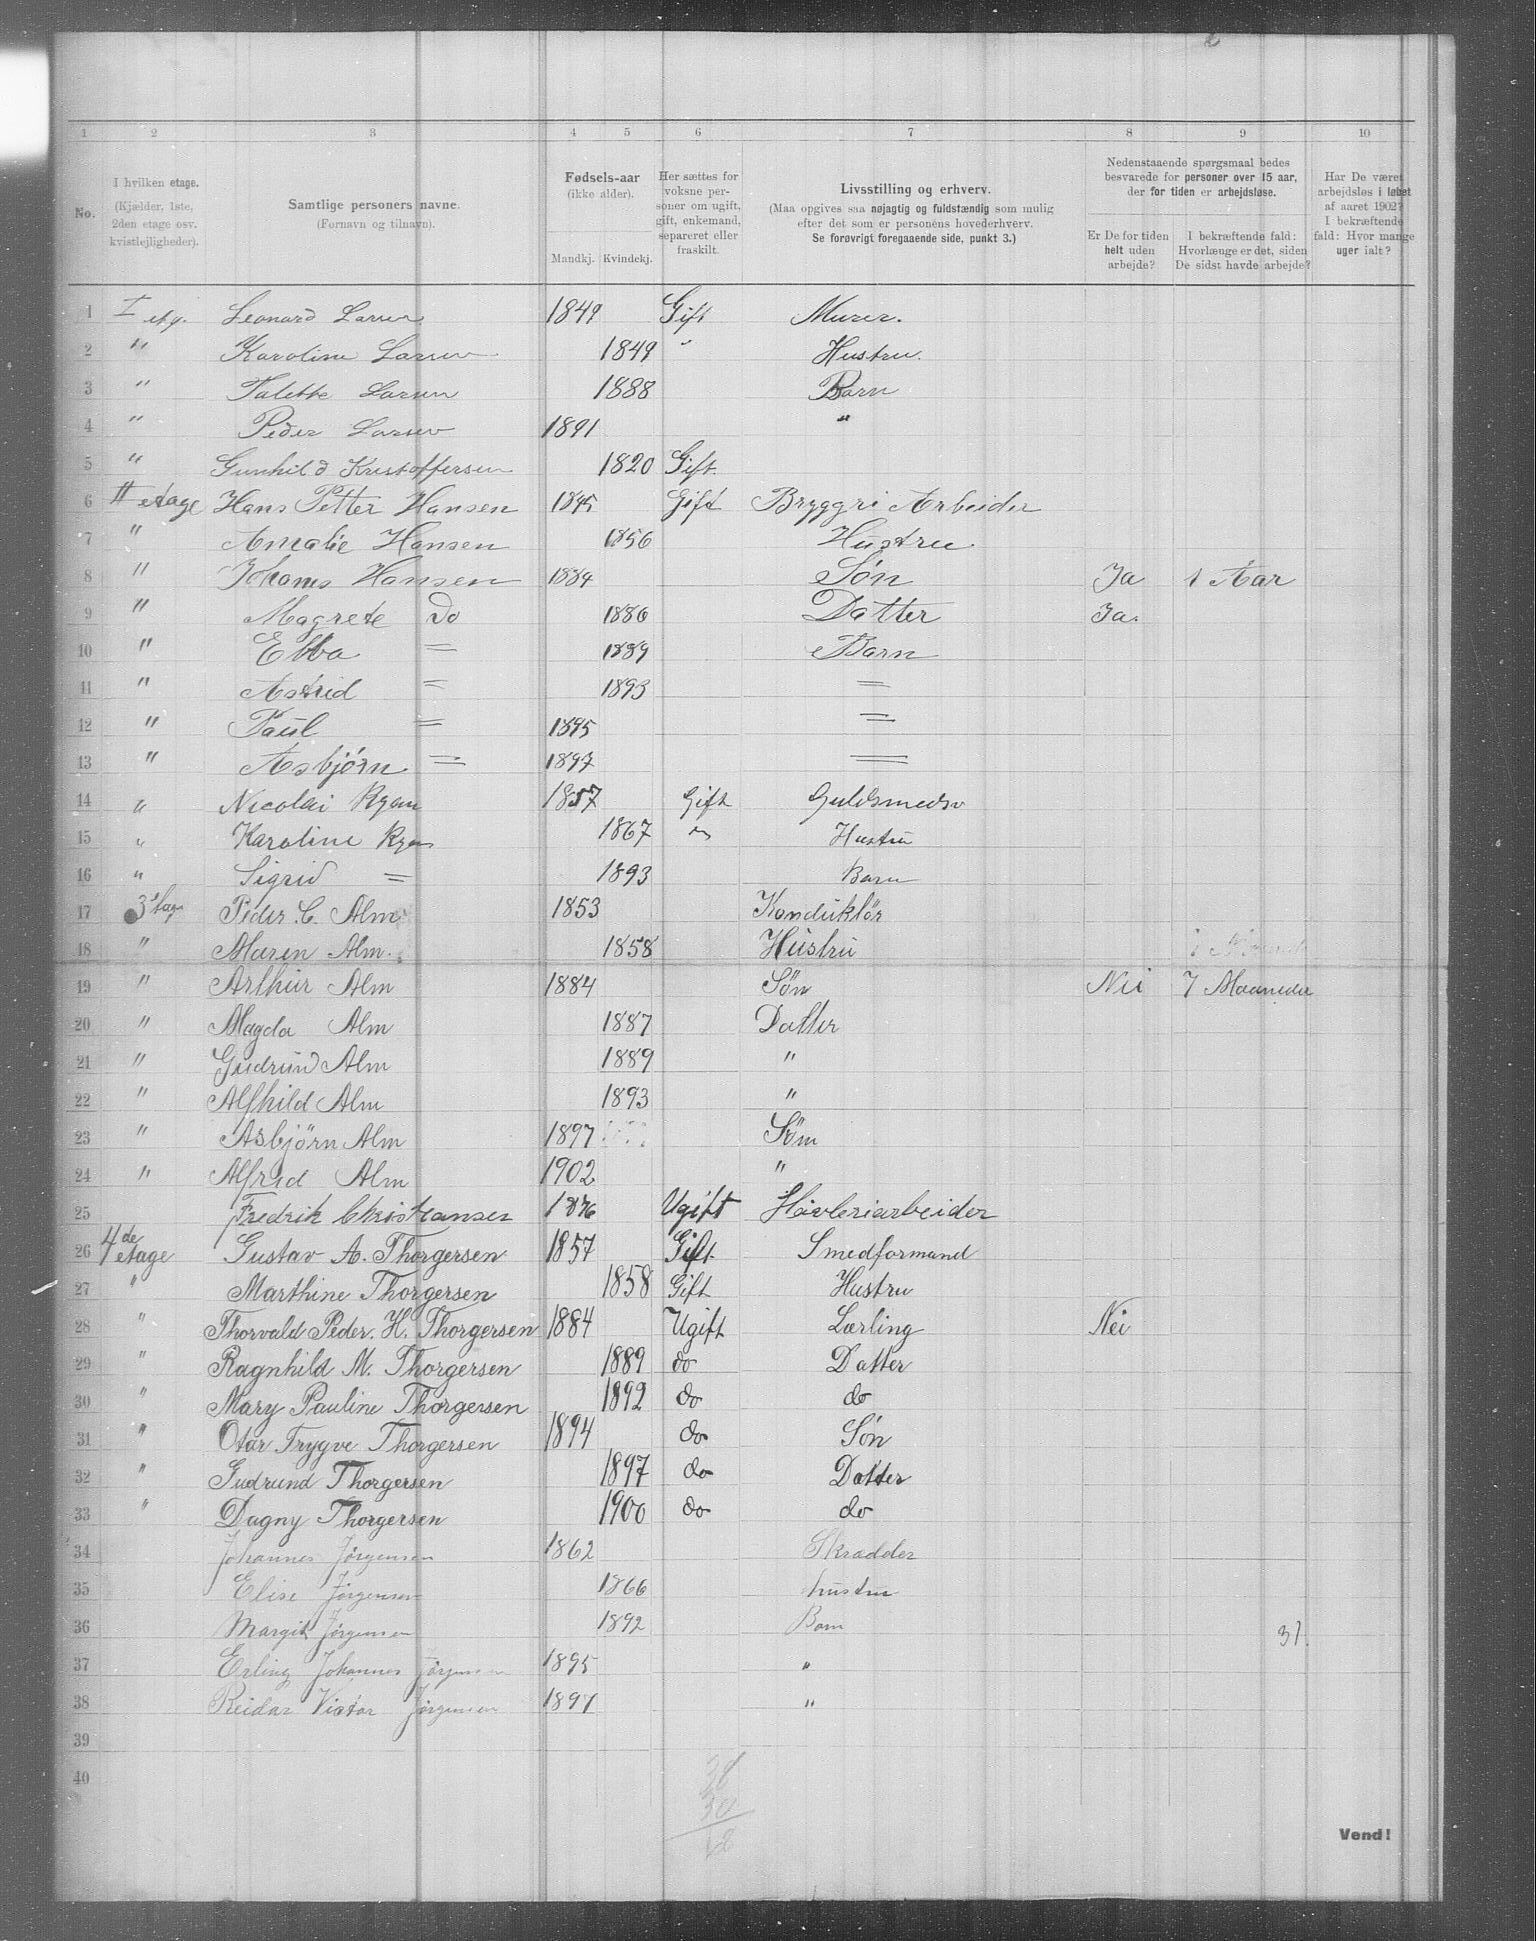 1 2 3 4 5 6 7 8 9 10
No.
I hvilken etage.
(Kjælder, 1ste,
2den etage osv.
kvistlejligheder).
Samtlige personers navne.
(Fornavn og tilnavn).
Fødsels-aar
(ikke alder).
Mandkj. Kvindekj.
Her sættes for
voksne per-
soner om ugift,
gift, enkemand,
separeret eller
fraskilt.
Livsstilling og erhverv.
(Maa opgives saa nøjagtig og fuldstændig som mulig
efter det som er personens hovederhverv.
Se forøvrigt foregaaende side, punkt 3.)
Nedenstaaende spørgsmaal bedes
besvarede for personer over 15 aar,
der for tiden er arbejdsløse.
Er De for tiden
helt uden
arbejde?
I bekræftende fald:
Hvorlænge er det, siden
De sidst havde arbejde?
Har De været
arbejdsløs i løbet
af aaret 1902?
I bekræftende
fald: Hvor mange
uger ialt?
1 I etg. Leonard Larsen 1849 Gift Murer.
2 " Karoline Larsen 1849 " Hustru.
3 " Valette Larsen 1888 Barn
4 " Peder Larsen 1891 "
5 " Gunhild Kristoffersen 1820 Gift
6 II etage Hans Petter Hansen 1845 Gift Bryggri Arbeider
7 " Amalie Hansen 1856 Hustru
8 " Johans Hansen 1884 Søn Ja 1 Aar
9 " Magrete Do 1886 Datter Ja.
10 " Ebba = 1889 Barn
11 " Astrid = 1893 =
12 " Paul = 1895 =
13 " Asbjørn = 1897 =
14 " Nicolai Ryan 1857 Gift Guldsmedsv
15 " Karoline Ryan 1867 " Hustru
16 " Sigrid = 1893 Barn
17 3 etage Peder C. Alm 1853 Konduktør
18 " Maren Alm. 1858 Hüstru
19 " Arthur Alm 1884 Søn Nei 7 Maaneder
20 " Magda Alm 1887 Datter
21 " Gudrund Alm 1889 "
22 " Alfhild Alm 1893 "
23 " Asbjörn Alm 1897 Søm
24 " Alfred Alm 1902 "
25 Fredrik Christiansen 1876 Ugift Høvleriarbeider
26 4de etage Gustav A. Thorgersen 1857 Gift Smedformand
27 " Marthine Thorgersen 1858 Gift Hustru
28 " Thorvald Peder. H. Thorgersen 1884 Ugift Lærling Nei
29 " Ragnhild M. Thorgersen 1889 do Datter
30 " Mary Pauline Thorgersen 1892 do do
31 " Otar Trygve Thorgersen 1894 do Søn
32 " Gudrund Thorgersen 1897 do Datter
33 " Dagny Thorgersen 1900 do do
34 Johannes Jørgensen 1862 Skrædder
35 Elise Jørgensen 1866 hustru
36 Margit Jørgensen 1892 Barn 31.
37 Erling Johannes Jørgensen 1895 "
38 Reidar Victor Jørgensen 1897 "
39
40
38
30
68
Vend!